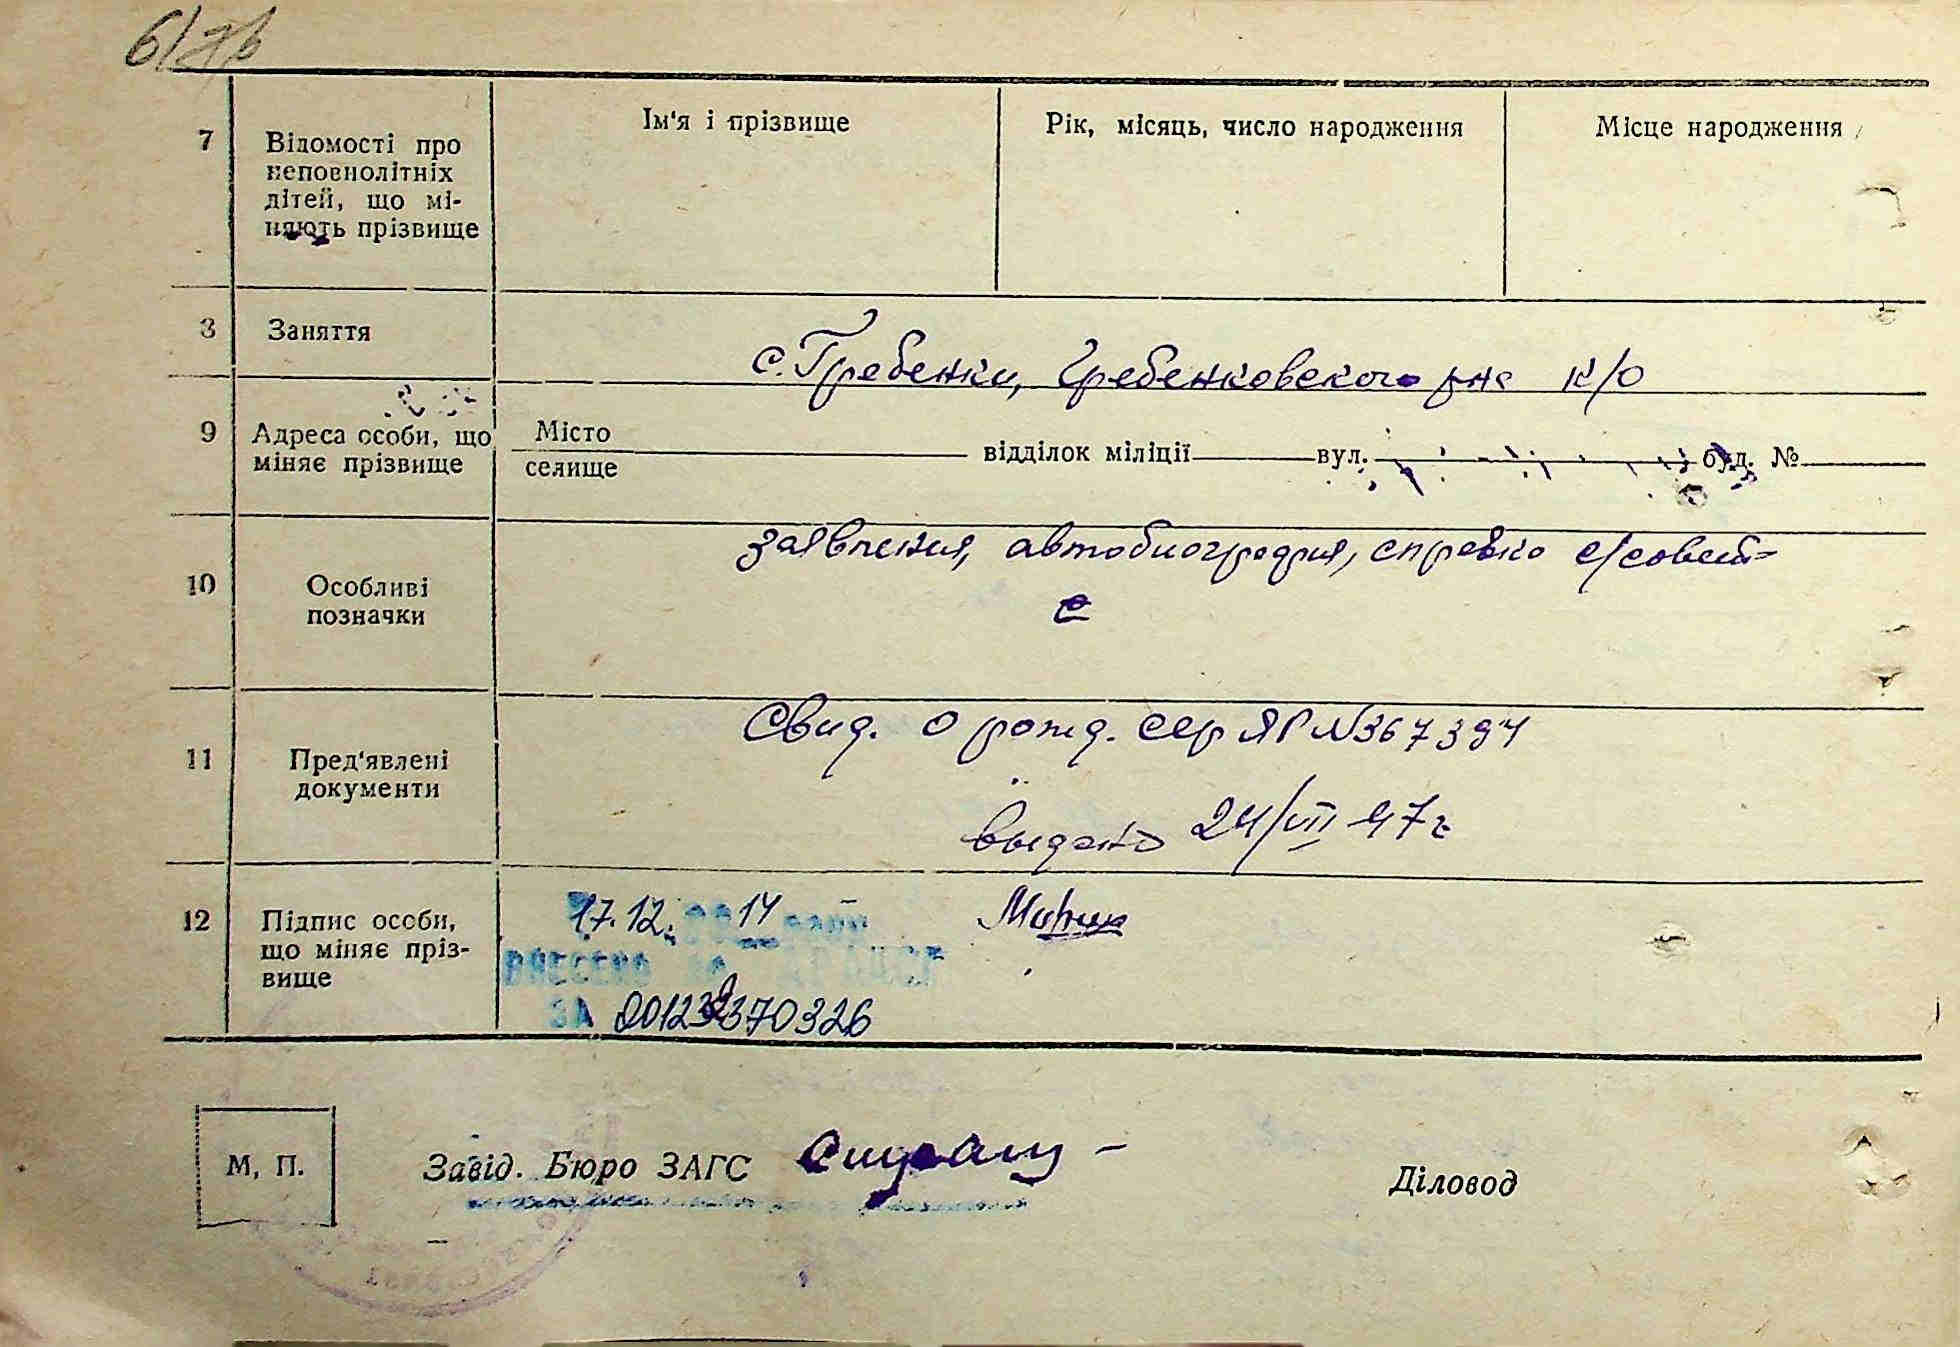 6/
Ім'я і прізвище
Рік, місяць, число народження
Місце народження
7
Відомості про
неповнолітніх
дітей, що мі-
няють прізвище
8
Заняття
с. Гребенки, Гребенковского р-на к/о
9
Адреса особи, що
міняє прізвище
Місто
селище
відділок міліції
вул.
буд. №
заявления, автобиография, справка с/совет-
а
10
Особливі
позначки
Свид. о рожд. сер ЯР N 367394
11
Пред'явлені
документи
выдано 24/VII 47 г.
12
Підпис особи,
що міняє пріз-
вище
17.12. 2014
ВНЕСЕНО
ЗА
М. П.
Завід. Бюро ЗАГС
Діловод